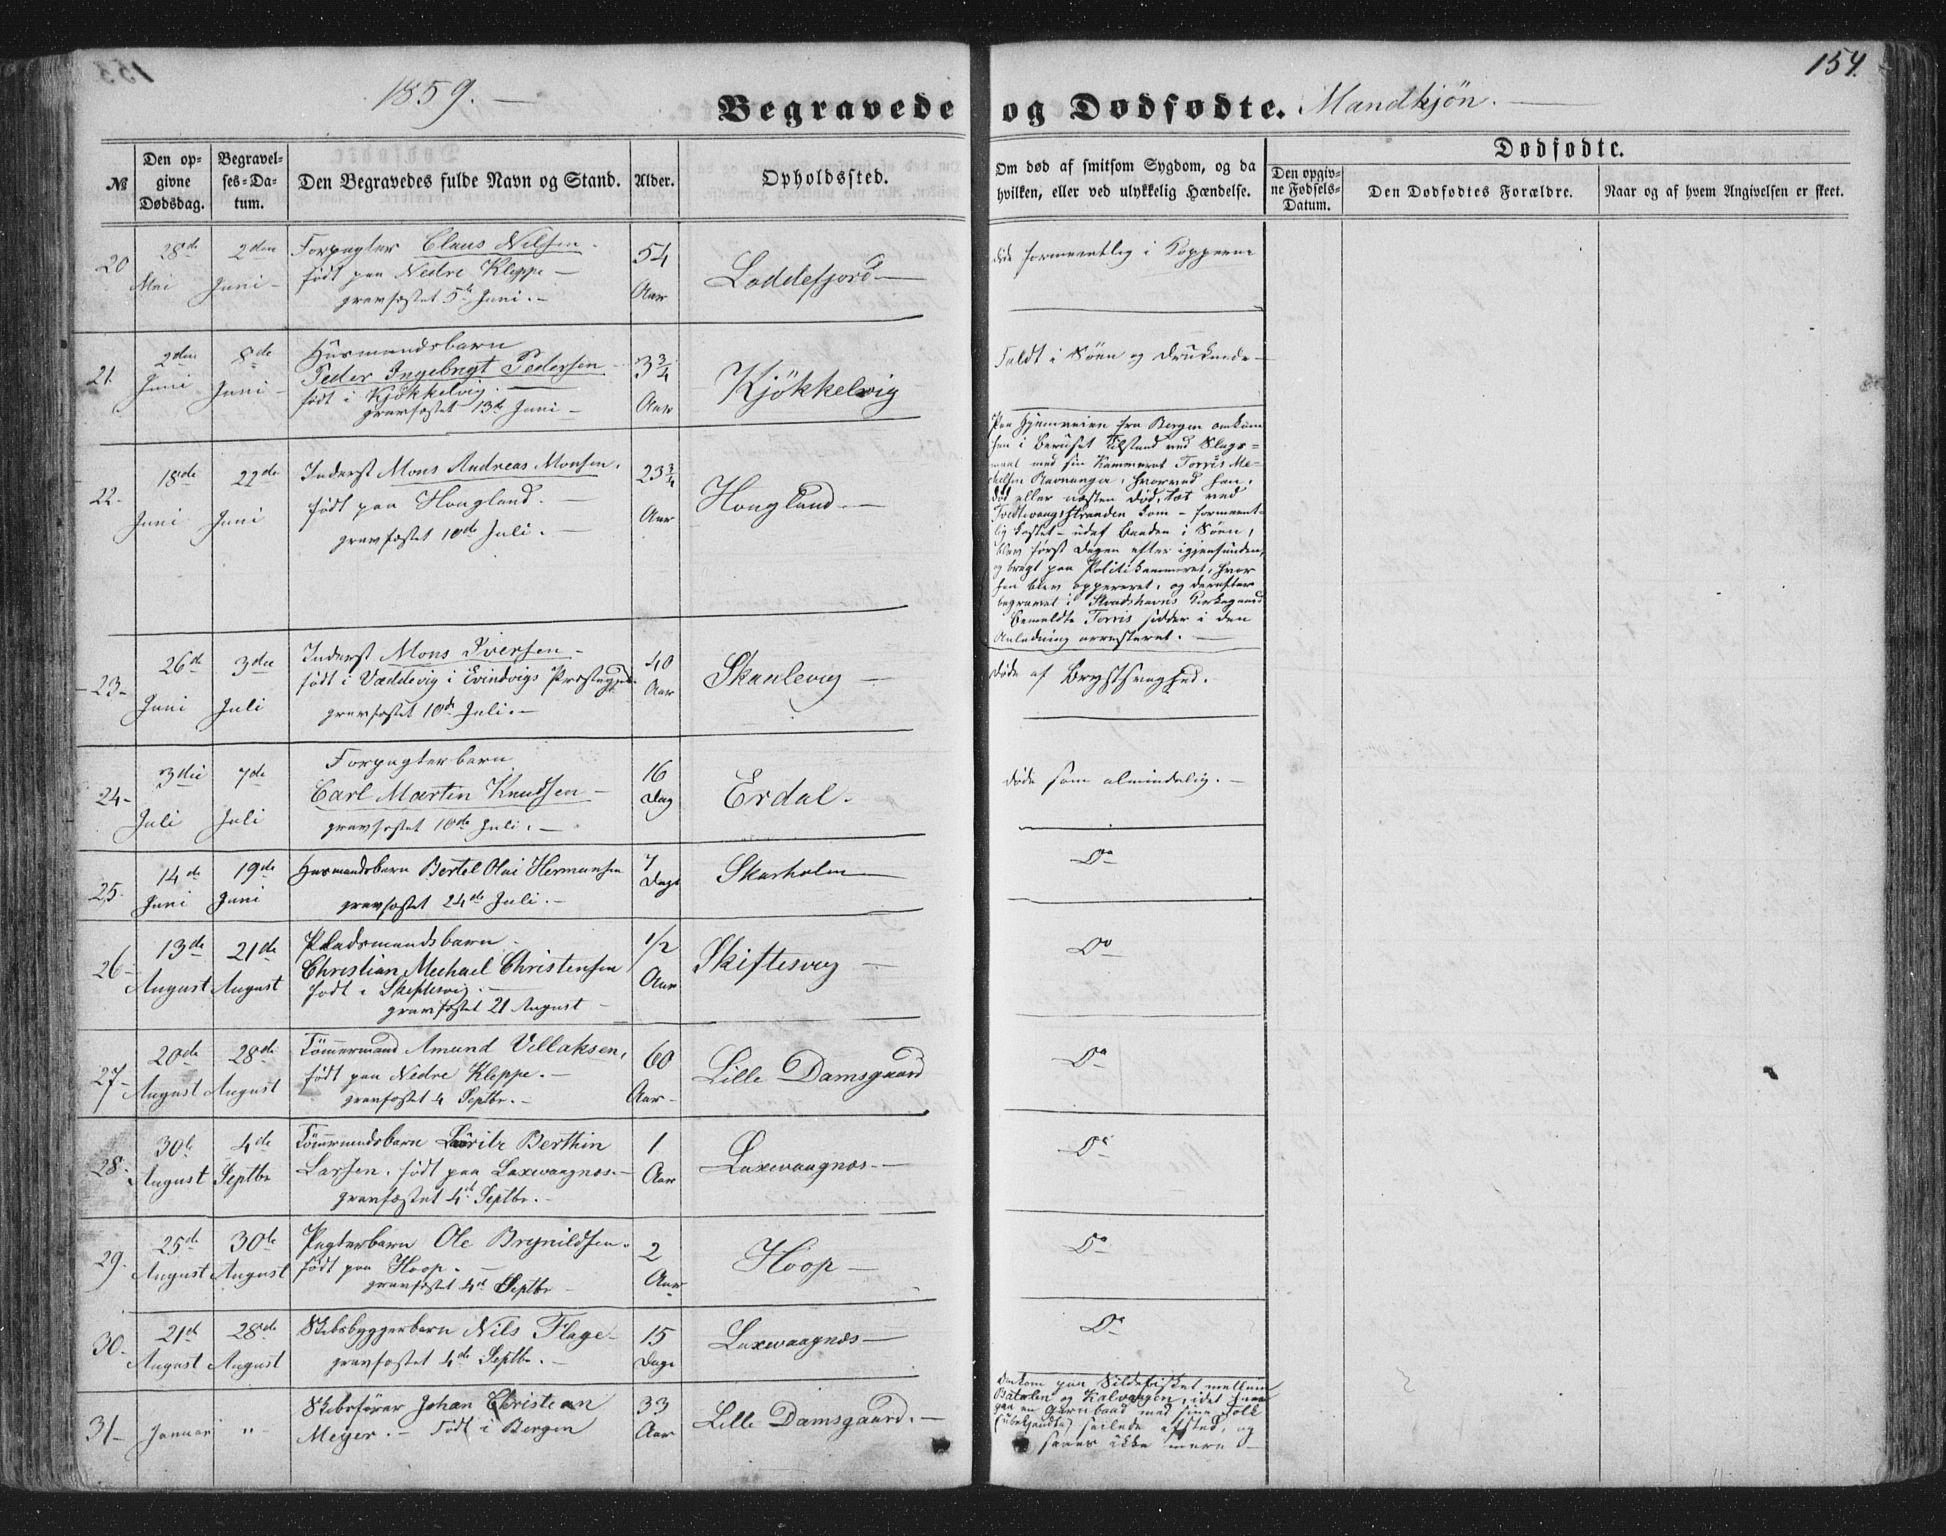 1859. —
154.
Begravede og Dødfødte. Mandkjøn. —
№
Den opgivne Dødsdag.
Begravelses-Datum.
Den Begravedes fulde Navn og Stand.
Alder.
Opholdssted.
Om død af smitsom Sygdom, og da hvilken, eller ved ulykkelig Hændelse.
Dødfødte.
Den opgivne Fødsels-Datum.
Den Dødfødtes Forældre.
Naar og af hvem Angivelsen er skeet.
20
28de Mai
2den Juni -
Forpagter Claus Nilsen -
født paa Nedre Kleppe —
gravfæstet 5te Juni. -
54 Aar
Loddefjord —
døde formeentlig i Kopperne
21.
2den Juni
8de Juni -
Huusmandsbarn
Peder Ingebrigt Pedersen -
født i Kjökkelvig. —
gravfæstet 13de Juni —
3 3/4 Aar
Kjökkelvig
Faldt i Søen og druknede —
22.
18de Juni
22de Juni
Inderst Mons Andreas Monsen.
født paa Hougland. —
gravfæstet 10de Juli. —
23 3/4 Aar
Hougland. —
Paa Hjemveien fra Bergen omkom
han i beruset Tilstand ved Slags-
maal med sin Kammerat Torris
hvorved han,
død eller næsten død, tæt ved
som - formeent-
lig kastet - udaf Baaden i Søen,
blev først Dagen efter igjenfunden,
og bragt paa Politikammeret, hvor
han blev, og derefter
begravet i Stradshavns Kirkegaard
Bemeldte Torris sidder i den
Anledning arresteret. —
23 -
26de Juni
3die Juli
Inderst Mons Iversen -
født i Væddevig i Evindvigs Præstegjeld.
gravfæstet 10de Juli. -
40 Aar
Skaalevig —
døde af Brystsvaghed.
24 -
3die Juli
7de Juli
Forpagterbarn
Carl Martin Knudsen —
gravfæstet 10de Juli. —
16 Dag
Erdal.
døde som almindelig. —
25.
14de Juni
19de Juni
Huusmandsbarn Bertel Olai Hermansen
gravfæstet 24de Juli. —
7 Dage
Skarholm
Do
26 -
13de August
21de August
Pladsmandsbarn -
Christian Mechael Christensen
født i Skiftesvig. —
gravfæstet 21 August —
1/2 Aar
Skiftesvig —
Do
27 -
20de August
28de August
Tømmermand Amund Villaksen,
født paa Nedre Kleppe. —
gravfæstet 4 Septbr. —
60 Aar -
Lille Damsgaard
Do
28.
30te August
4de Septbr
Tømmermandsbarn Laurits Berthin
Larsen. født paa Laxevaagnæs. -
gravfæstet 4d Septbr. -
1 Aar
Laxevaagnæs. —
Do
29.
25de August
30te August
Pagterbarn Ole Brynildsen.
født paa Hoop. —
gravfæstet 4d Septbr
2 Aar
Hoop —
Do
30.
21d August
28de August
Skibsbyggerbarn Nils Flage -
gravfæstet 4de Septbr. —
15 Dage
Laxevaagnæs —
Do
31 -
Januar
"
Skibsfører Johan Christean
Meyer. — født i Bergen
33 Aar
Lille Damsgaard. —
Omkom paa Sildefisket mellem
Batalen og Kalvaagen, idet han
paa en Garnbaad med sine Folk
(ubekjendte) seilede afsted, og
saaes ikke mere